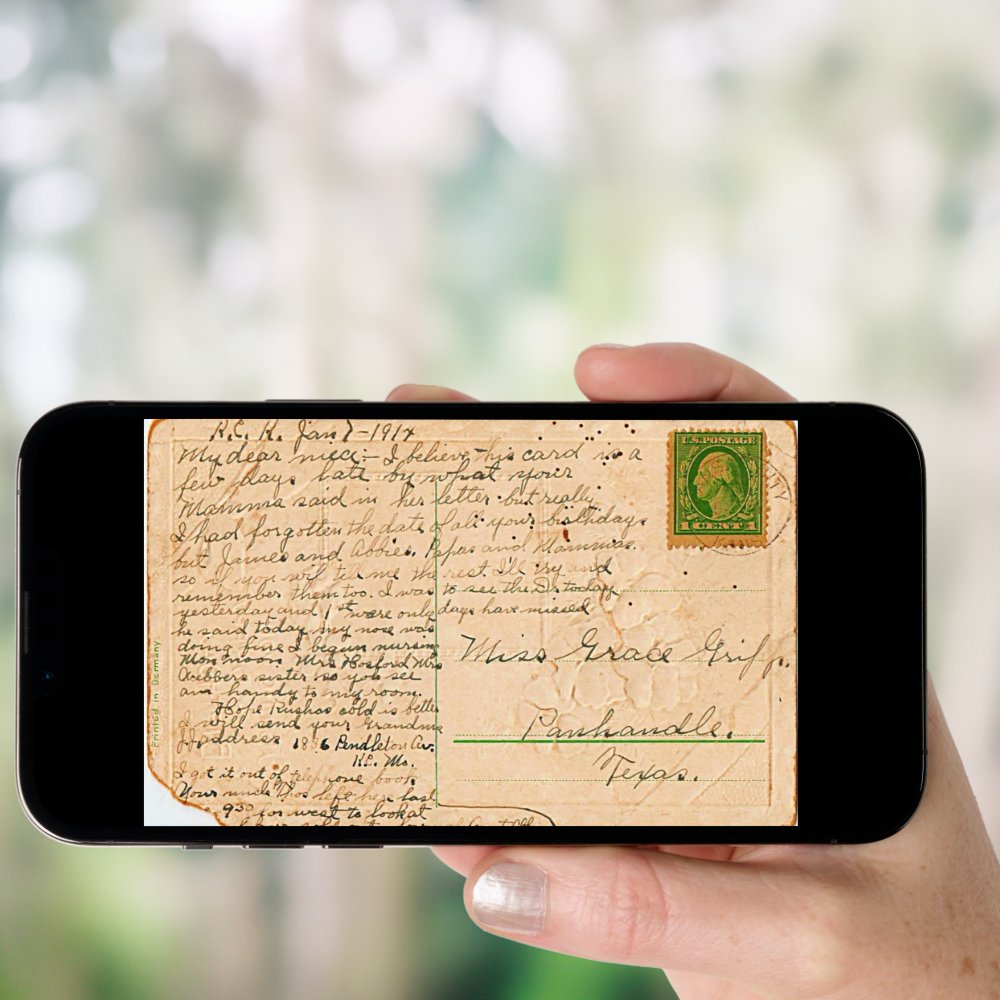 K.C. K. Jan 7-1917
My dear niece:- I believe this card is a
few days late by what your
Mamma said in her letter but really
I had forgotten the date of all your birthdays
but James and Abbies, Papas and Mammas.
so if you will tell me the rest I'll try and
remember them too. I was to see the Dr. today
yesterday and 1st were only days have missed
he said today my nose was
doing fine I begun nursing
Mon noon Mrs Hosford Mrs
sister so you see
am handy to my room.
Hope cold is better
I will send your Grandma
J address Pendleton Av.
K.C. Mo.
I got it out of telephone book
Your uncle Thos left here last
9³⁰ for west to look at
U.S. POSTAGE
1 CENT 1
Miss Grace
Panhandle.
Texas.
Printed in Germany